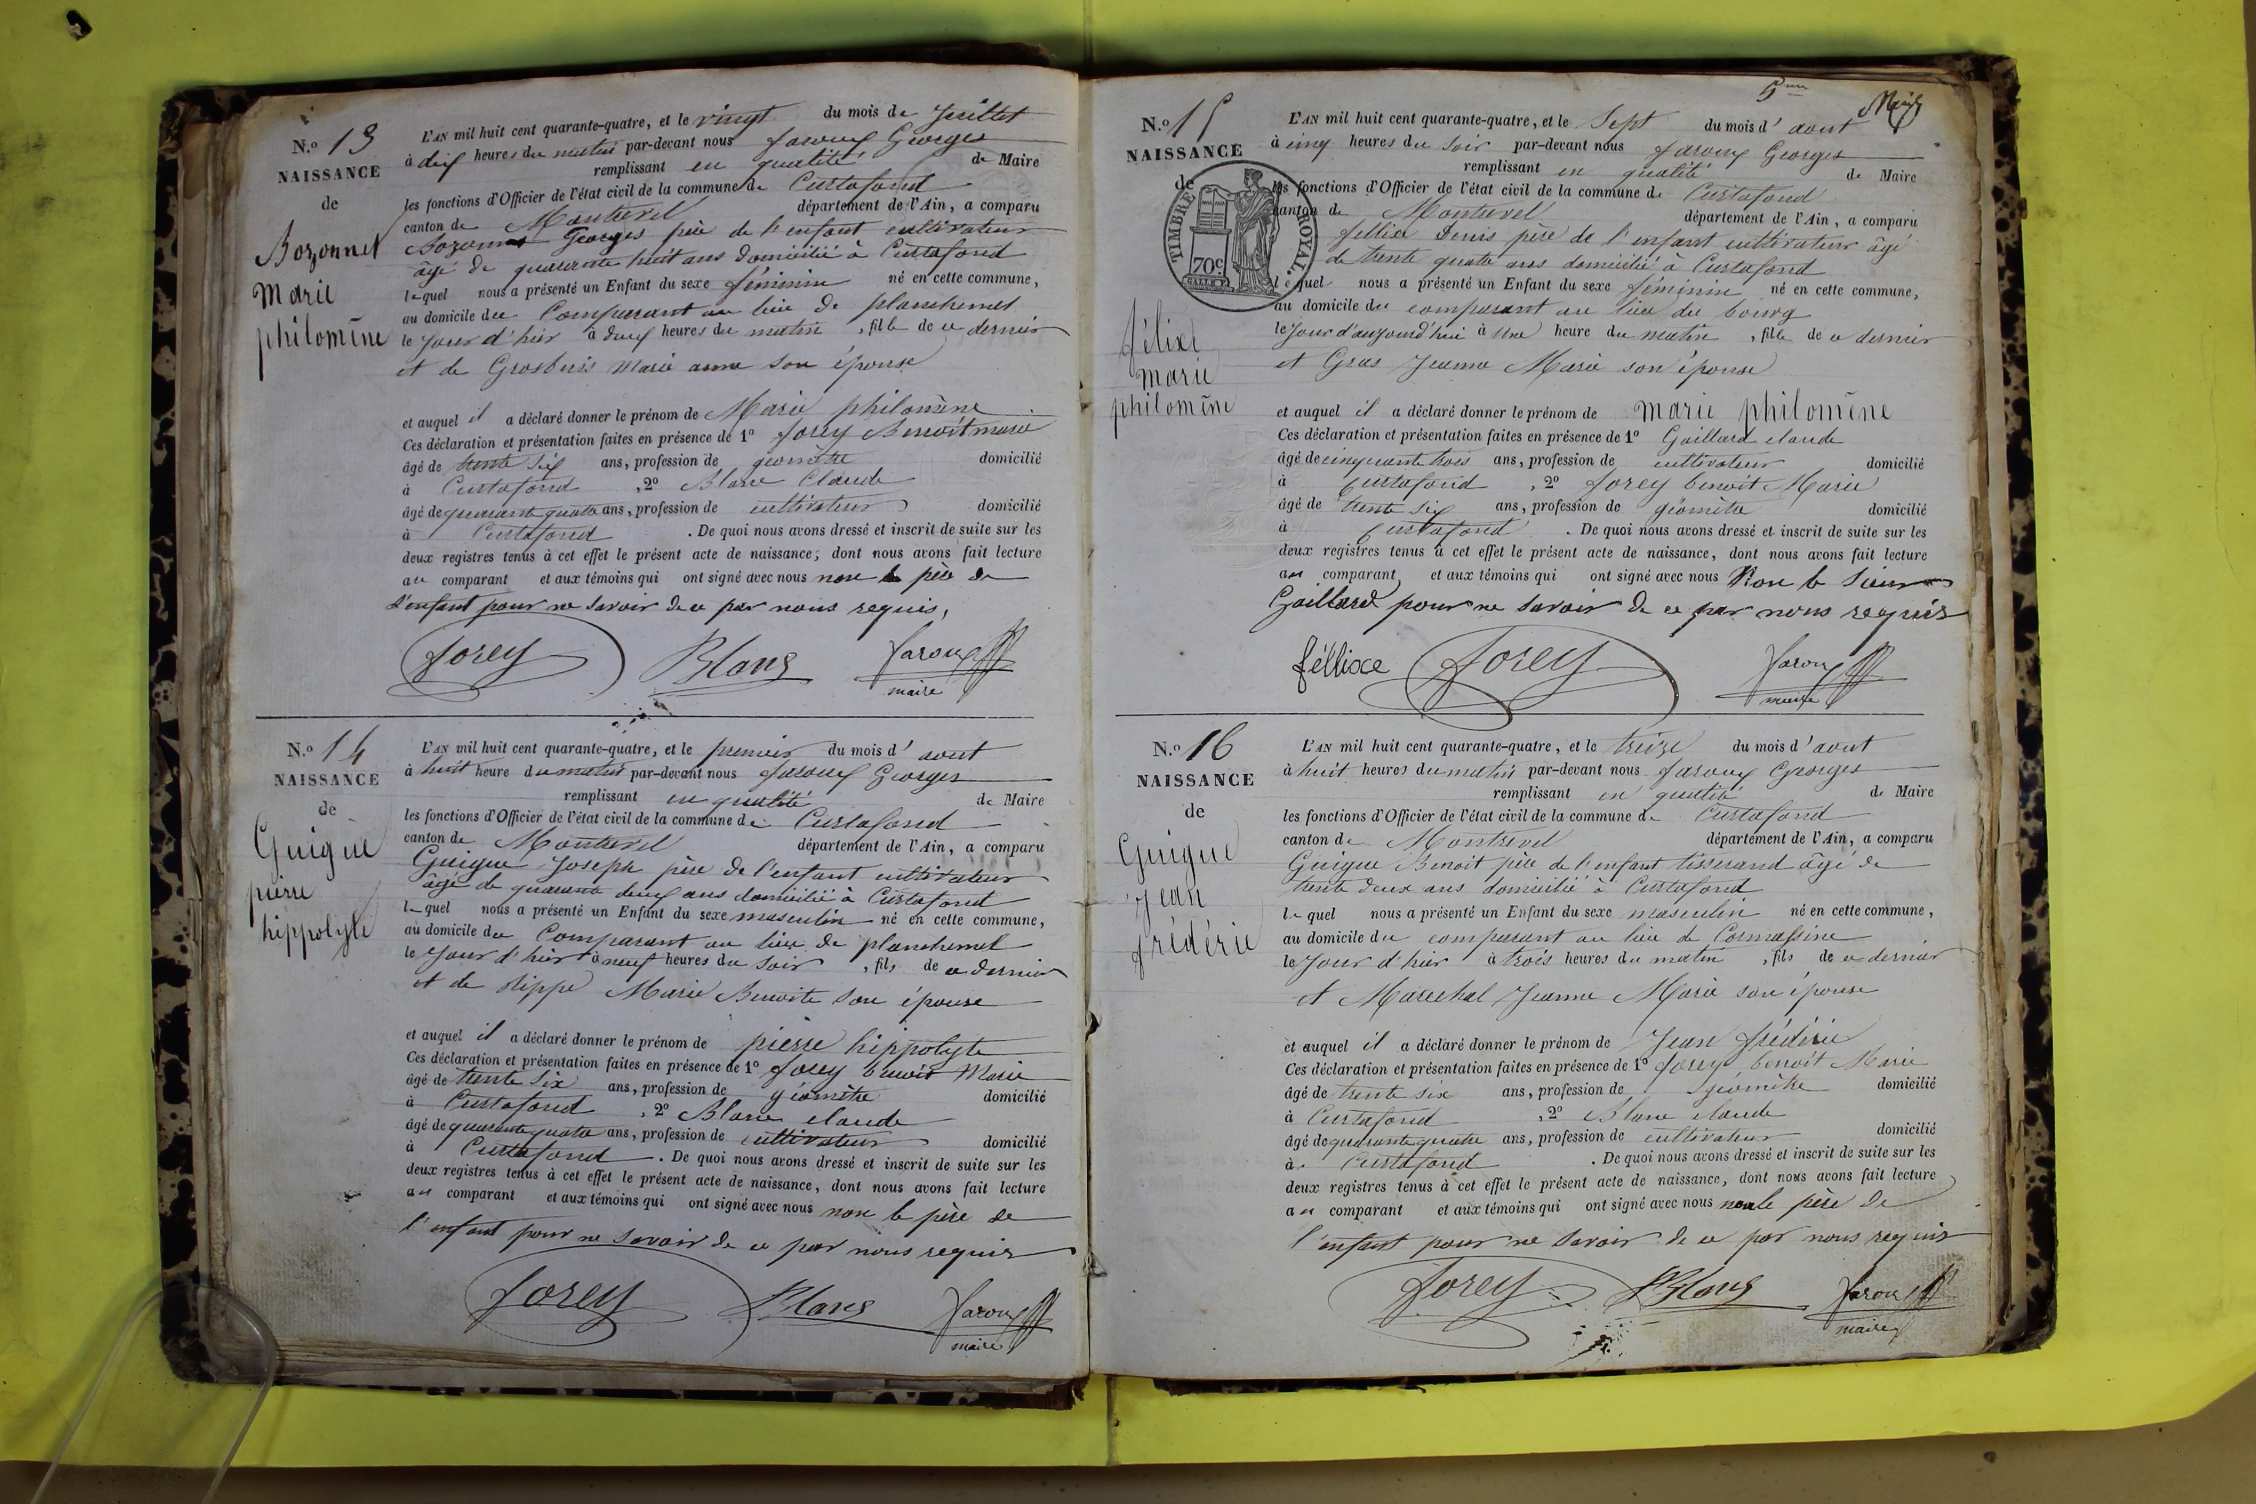 N.o 13
NAISSANCE
de
Bozonnet
marie
philomène
L'AN mil huit cent quarante-quatre, et le vingt du mois de Juillet
à dix heures du matin par-devant nous Jaroux Georges
remplissant en qualité de Maire
les fonctions d'Officier de l'état civil de la commune de Curtafond
canton de Montrevel département de l'Ain, a comparu
Bozonnet Georges père de l'enfant cultivateur
âgé de quarante huit ans domicilié à Curtafond
lequel nous a présenté un Enfant du sexe féminin né en cette commune,
au domicile du Comparant au lieu de planchemel
le Jour d'hier à deux heures du matin, fille de ce dernier
et de Grosbuis Marie anne son épouse
et auquel il a déclaré donner le prénom de Marie philomène
Ces déclaration et présentation faites en présence de 1o Jorey Benoît marie
âgé de trente six ans, profession de géomètre domicilié
à Curtafond, 2o Blanc Claude
âgé de quarante quatre ans, profession de cultivateur domicilié
à Curtafond. De quoi nous avons dressé et inscrit de suite sur les
deux registres tenus à cet effet le présent acte de naissance; dont nous avons fait lecture
au comparant et aux témoins qui ont signé avec nous non le père de
l'enfant pour ne savoir de ce par nous requis,
Jorey Blanc Jaroux
maire
N.o 14
NAISSANCE
de
Guigue
pierre
hippolyte
L'AN mil huit cent quarante-quatre, et le premier du mois d'aout
à huit heure du matin par-devant nous Jaroux Georges
remplissant en qualité de Maire
les fonctions d'Officier de l'état civil de la commune de Curtafond
canton de Montrevel département de l'Ain, a comparu
Guigue Joseph père de l'enfant cultivateur
âgé de quarante deux ans domicilié à Curtafond
lequel nous a présenté un Enfant du sexe masculin né en cette commune,
au domicile du Comparant au lieu de planchemel
le Jour d'hier à neuf heures du soir, fils de ce dernier
et de Rippe Marie Benoite son épouse
et auquel il a déclaré donner le prénom de pierre hippolyte
Ces déclaration et présentation faites en présence de 1o Jorey benoit Marie
âgé de trente six ans, profession de géomètre domicilié
à Curtafond, 2o Blanc claude
âgé de quarante quatre ans, profession de cultivateur domicilié
à Curtafond. De quoi nous avons dressé et inscrit de suite sur les
deux registres tenus à cet effet le présent acte de naissance, dont nous avons fait lecture
au comparant et aux témoins qui ont signé avec nous non le père de
l'enfant pour ne savoir de ce par nous requis
Jorey Blanc Jaroux
maire
5me
N.o 15
NAISSANCE
de
TIMBRE ROYAL.
70c
félixe
marie
philomène
L'AN mil huit cent quarante-quatre, et le Sept du mois d'aout
à cinq heures du soir par-devant nous Jaroux Georges
remplissant en qualité de Maire
les fonctions d'Officier de l'état civil de la commune de Curtafond
canton de Montrevel département de l'Ain, a comparu
fellixe Denis père de l'enfant cultivateur âgé
de trente quatre ans domicilié à Curtafond
lequel nous a présenté un Enfant du sexe féminin né en cette commune,
au domicile du comparant au lieu du bourg
le Jour d'aujourd'hui à une heure du matin, fille de ce dernier
et Gras Jeanne Marie son épouse
et auquel il a déclaré donner le prénom de marie philomène
Ces déclaration et présentation faites en présence de 1o Gaillard claude
âgé de cinquante trois ans, profession de cultivateur domicilié
à Curtafond, 2o Jorey benoit Marie
âgé de trente six ans, profession de géomètre domicilié
à Curtafond. De quoi nous avons dressé et inscrit de suite sur les
deux registres tenus à cet effet le présent acte de naissance, dont nous avons fait lecture
au comparant et aux témoins qui ont signé avec nous Non le Sieur
Gaillard pour ne savoir de ce par nous requis
féllixe Jorey Jaroux
maire
N.o 16
NAISSANCE
de
Guigue
Jean
frédéric
L'AN mil huit cent quarante-quatre, et le treize du mois d'aout
à huit heures du matin par-devant nous Jaroux Georges
remplissant en qualité de Maire
les fonctions d'Officier de l'état civil de la commune de Curtafond
canton de Montrevel département de l'Ain, a comparu
Guigue Benoit père de l'enfant tisserand âgé de
trente deux ans domicilié à Curtafond
lequel nous a présenté un Enfant du sexe masculin né en cette commune,
au domicile du comparant au lieu de Cormassine
le Jour d'hier à trois heures du matin, fils de ce dernier
et Marechal Jeanne Marie son épouse
et auquel il a déclaré donner le prénom de Jean frédéric
Ces déclaration et présentation faites en présence de 1o Jorey benoit Marie
âgé de trente six ans, profession de géomètre domicilié
à Curtafond, 2o Blanc claude
âgé de quarante quatre ans, profession de cultivateur domicilié
à Curtafond. De quoi nous avons dressé et inscrit de suite sur les
deux registres tenus à cet effet le présent acte de naissance, dont nous avons fait lecture
au comparant et aux témoins qui ont signé avec nous non le père de
l'enfant pour ne savoir de ce par nous requis
Jorey Blanc Jaroux
maire